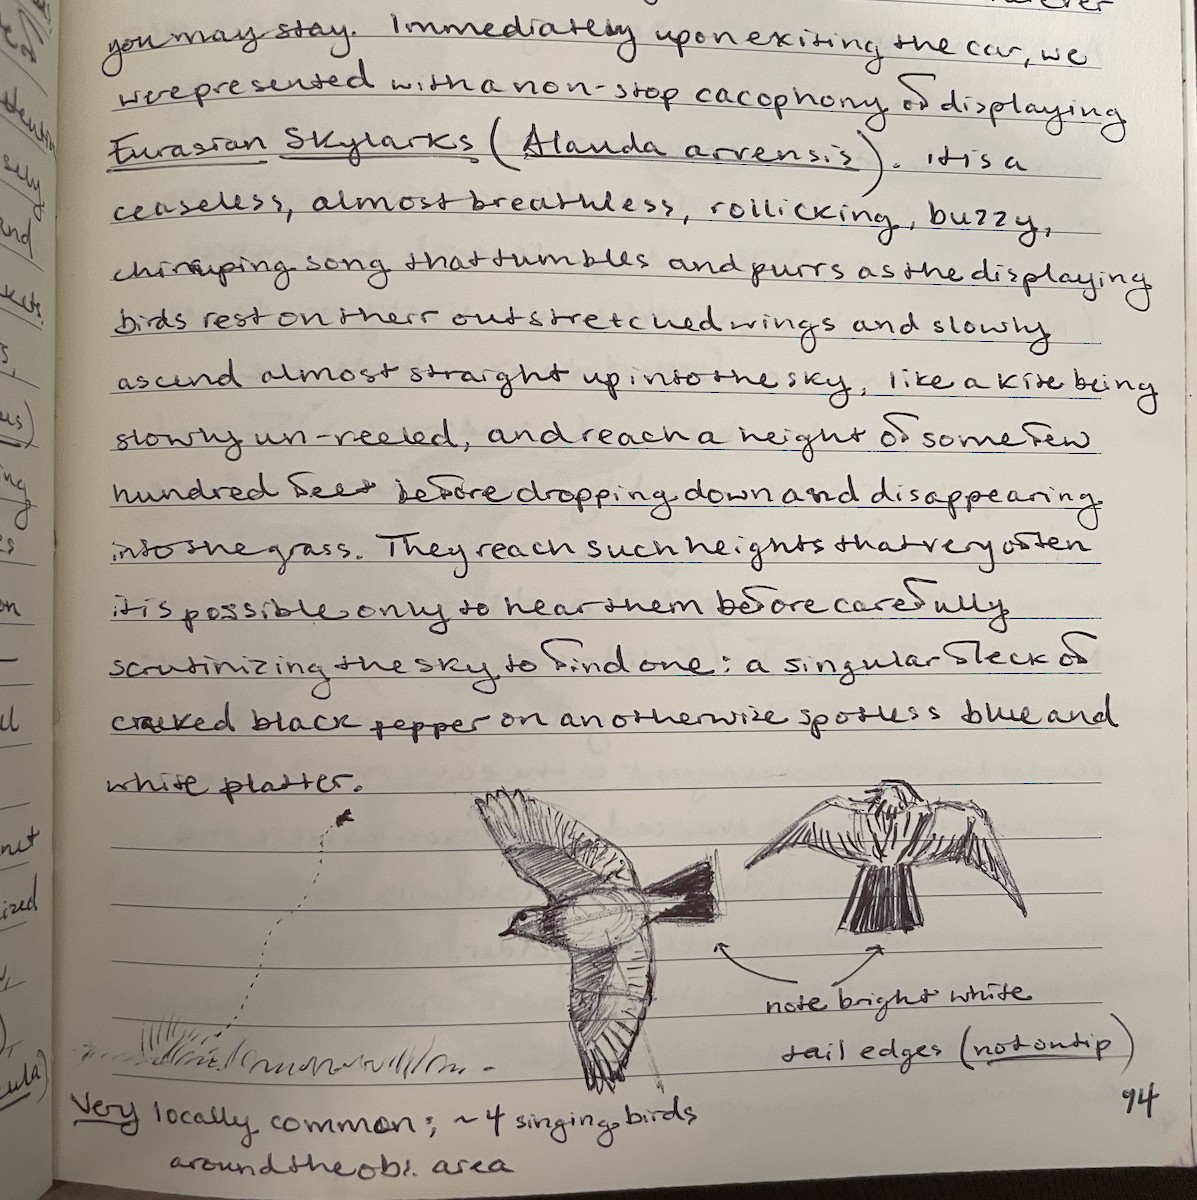 you may stay. Immediately upon exiting the car, we
were presented with a non-stop cacophony of displaying
Eurasian Skylarks (Alauda arvensis). it is a
ceaseless, almost breathless, rollicking, buzzy,
chirruping song that tumbles and purrs as the displaying
birds rest on their outstretched wings and slowly
ascend almost straight up into the sky, like a kite being
slowly un-reeled, and reach a height of some few
hundred feet before dropping down and disappearing
into the grass. They reach such heights that very often
it is possible only to hear them before carefully
scrutinizing the sky to find one: a singular fleck of
cracked black pepper on an otherwise spotless blue and
white platter.
note bright white
tail edges (not on tip)
94
Very locally common; ~4 singing birds
around the obs. area